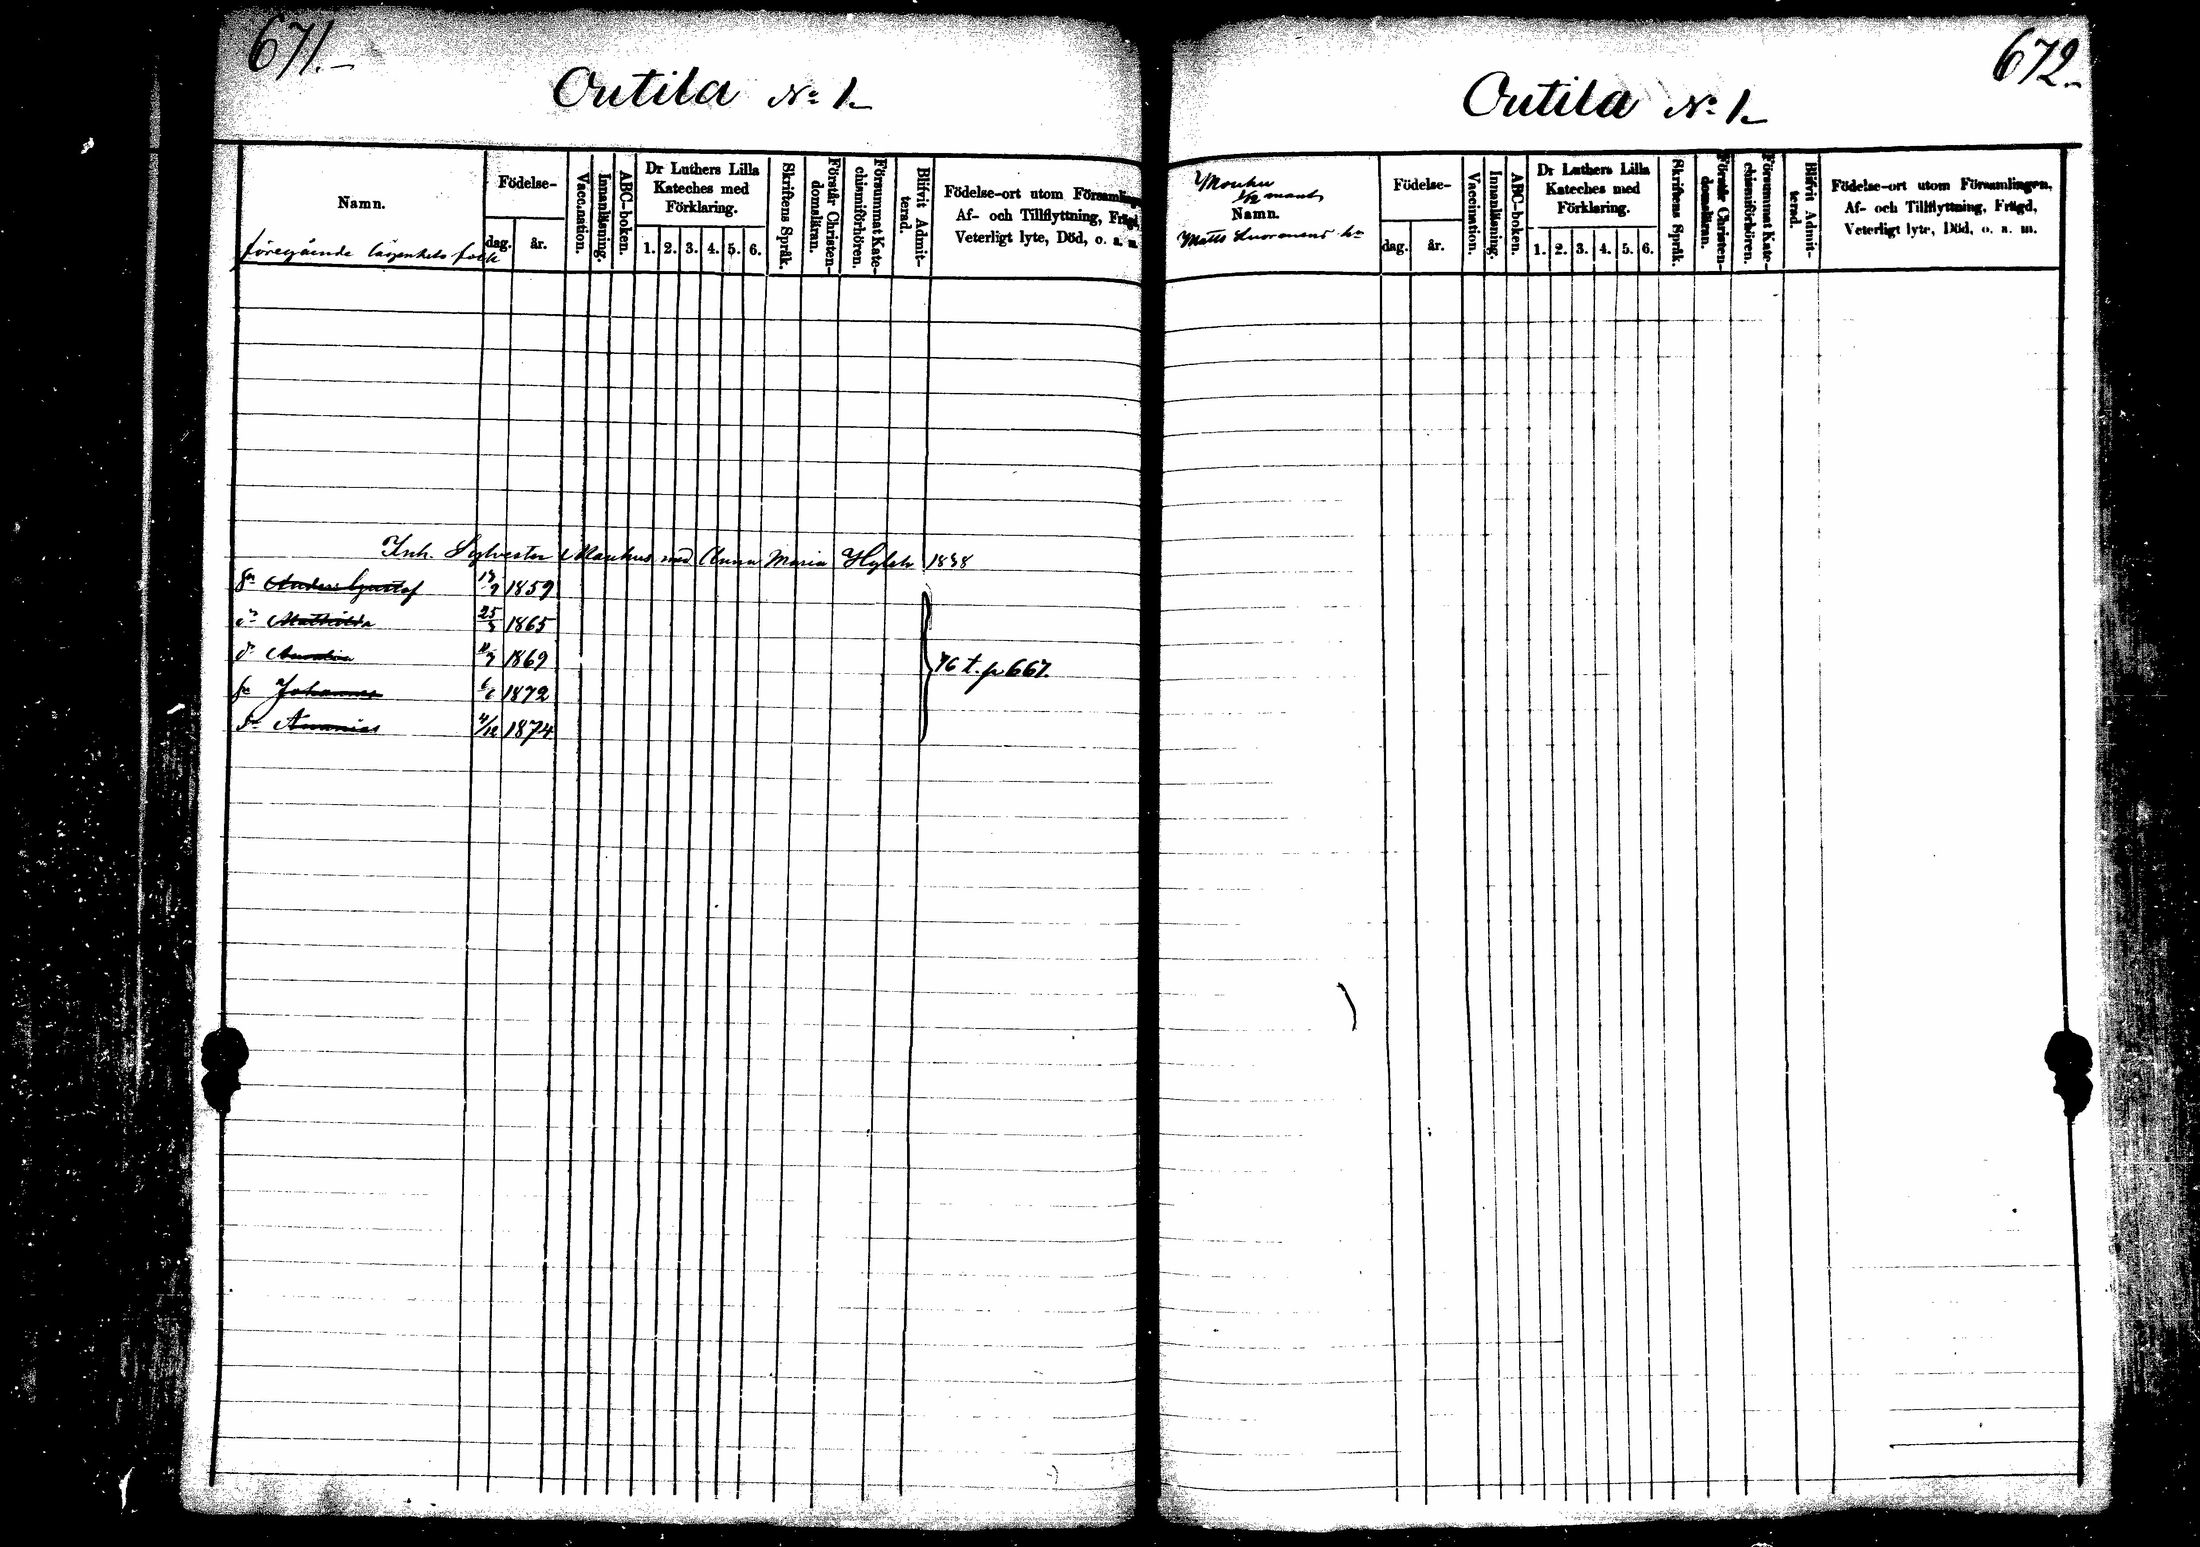 671.
Outila No 1.
Namn.
föregående lägenhets folk
Födelse-
dag. år.
Vaccination.
Innanläsning.
ABC-boken.
Dr Luthers Lilla
Kateches med
Förklaring.
1. 2. 3. 4. 5. 6.
Skriftens Språk.
Förstår Christen-
domsläran.
Försummat Kate-
chismiförhören.
Blifvit Admit-
terad.
Födelse-ort utom Församling
Af- och Tillflyttning, Frägd,
Veterligt lyte, Död, o. a. m.
Inh. Sylvester Maukus med Anna Maria 1838
Anders Gustaf 1859
Mathilda 25/3 1865
1869
Johannes 1872
Ananias 4/12 1874
76 t. p 667.
672
Outila No 1.
Mouhu
mant.
Namn.
Matts Suoranens
Födelse-
dag. år.
Vaccination.
Innanläsning.
ABC-boken.
Dr Luthers Lilla
Kateches med
Förklaring.
1. 2. 3. 4. 5. 6.
Skriftens Språk.
Förstår Christen-
domsläran.
Försummat Kate-
chismiförhören.
Blifvit Admit-
terad.
Födelse-ort utom Församlingen,
Af- och Tillflyttning, Frägd,
Veterligt lyte, Död, o. a. m.